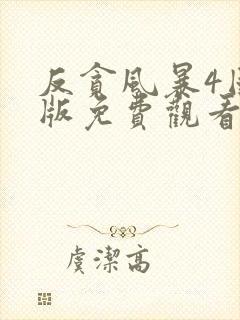 反貪風暴4國
版免費觀看
虞潔高